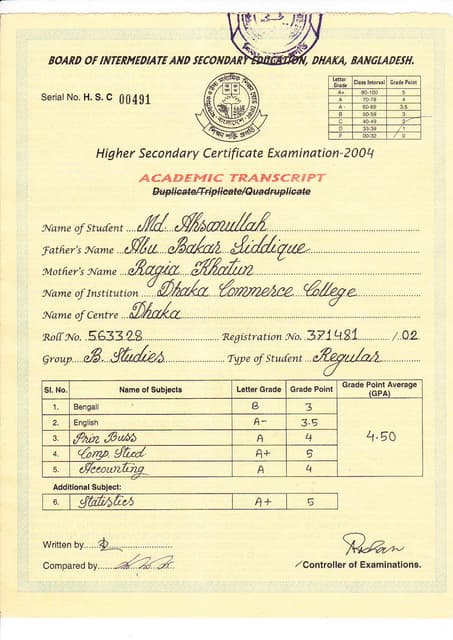 BOARD OF INTERMEDIATE AND SECONDARY EDUCATION, DHAKA, BANGLADESH.
Serial No. H. S. C 00491
Letter Grade Class Interval Grade Point
A+ 80-100 5
A 70-79 4
A- 60-69 3.5
B 50-59 3
C 40-49 2
D 33-39 1
F 00-32 0
Higher Secondary Certificate Examination-2004
ACADEMIC TRANSCRIPT
Duplicate/Triplicate/Quadruplicate
Name of Student Md. Ahsanullah
Father's Name Abu Bakar Siddique
Mother's Name Ragia Khatun
Name of Institution Dhaka Commerce College
Name of Centre Dhaka
Roll No. 563328 Registration No. 371481 /02
Group B. Studies Type of Student Regular
Sl. No. Name of Subjects Letter Grade Grade Point Grade Point Average (GPA)
1. Bengali B 3
2. English A- 3.5
3. Prin Buss A 4
4.50
4. Comp. Stied A+ 5
5. Accounting A 4
Additional Subject:
6. Statistics A+ 5
Written by
Compared by
Controller of Examinations.